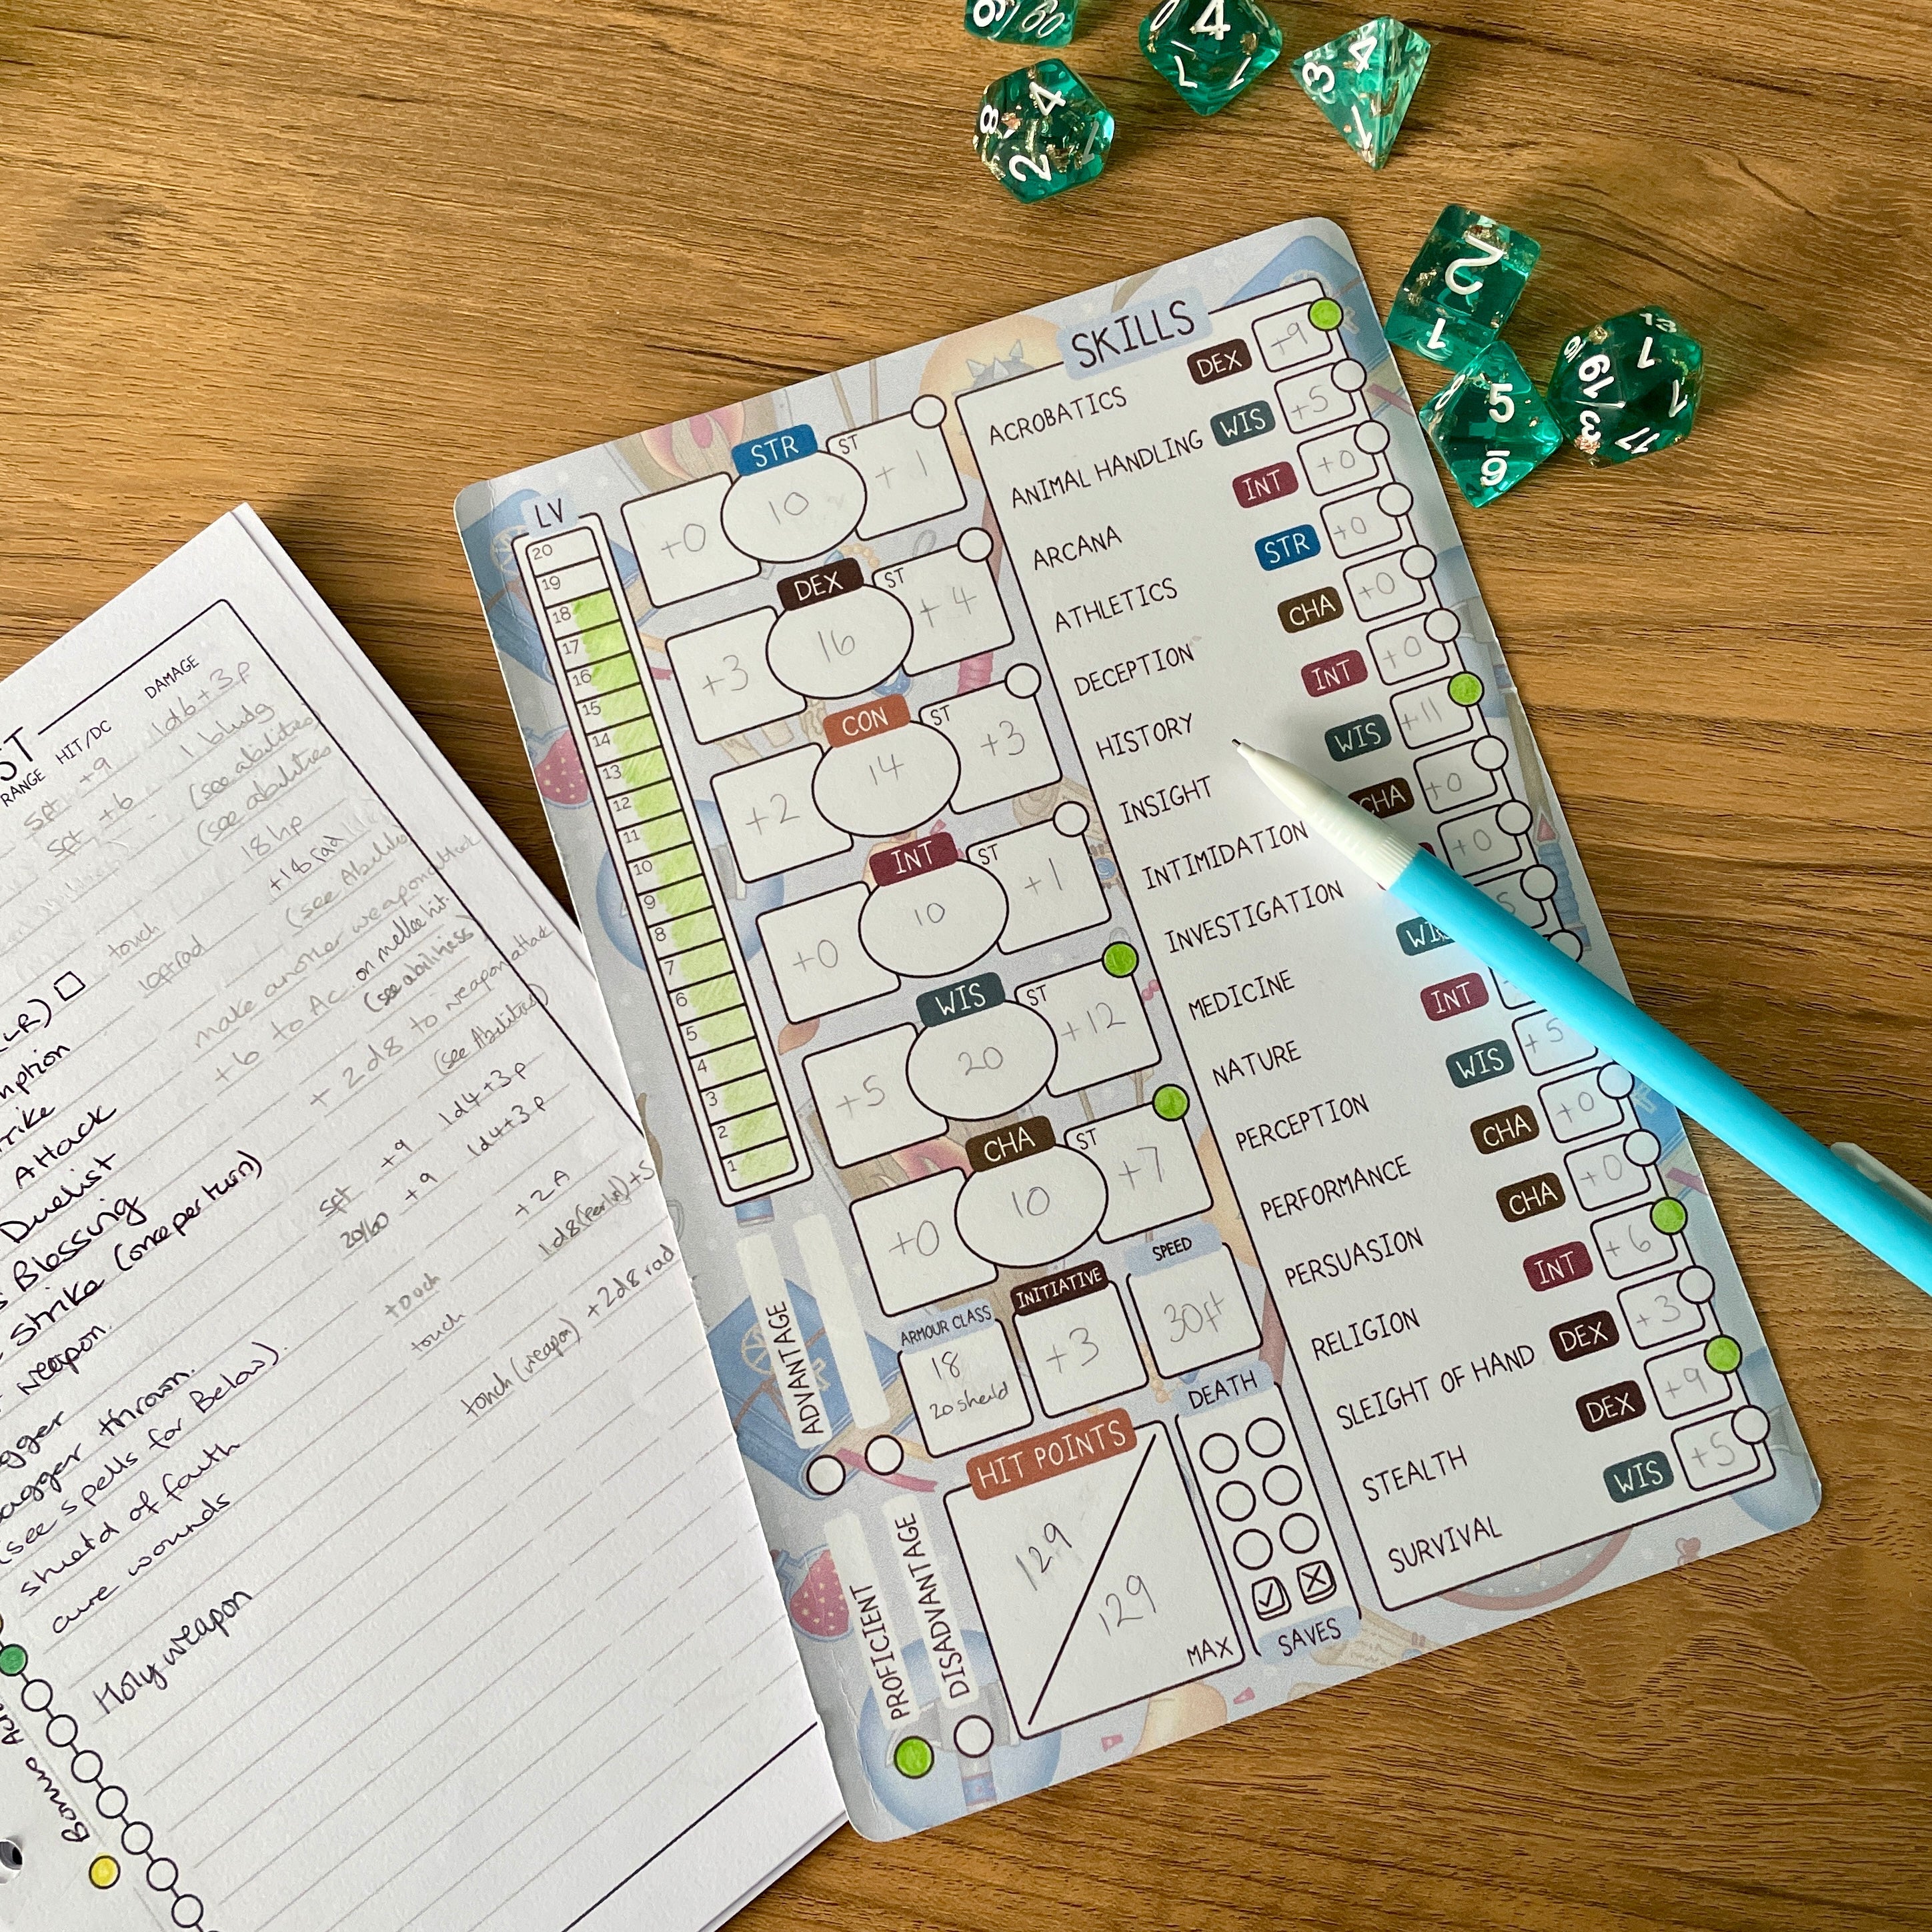 ST
RANGE HIT/DC DAMAGE
5ft +9 1d6+3 p
5ft +6 1 bludg
(see abilities)
(see abilities)
18hp
touch +1d8 rad
10ft rad (see Abilities)
make another weapon attack
+6 to Ac. on mellee hit.
(see abilities)
+ 2d8 to weapon attack
(see Abilities)
5ft +9 1d4+3 p
20/60 +9 1d4+3 p
touch +2 A
touch 1d8 (per lvl) +5
touch (weapon) +2d8 rad
(LR)
mption
trike
Attack
Duelist
s Blessing
Strike (once per turn)
weapon.
agger
dagger thrown.
(see spells for Below).
shield of faith
cure wounds
Holy weapon
Bonus
LV
20
19
18
17
16
15
14
13
12
11
10
9
8
7
6
5
4
3
2
1
STR
ST
+0 10 +1
DEX
ST
+3 16 +4
CON
ST
+2 14 +3
INT
ST
+0 10 +1
WIS
ST
+5 20 +12
CHA
ST
+0 10 +7
ARMOUR CLASS
18
20 sheild
INITIATIVE
+3
SPEED
30ft
ADVANTAGE
PROFICIENT
DISADVANTAGE
HIT POINTS
129
129
MAX
DEATH
SAVES
SKILLS
ACROBATICS DEX +9
ANIMAL HANDLING WIS +5
ARCANA INT +0
ATHLETICS STR +0
DECEPTION CHA +0
HISTORY INT +0
INSIGHT WIS +11
INTIMIDATION CHA +0
INVESTIGATION +0
MEDICINE WIS 5
NATURE INT
PERCEPTION WIS +5
PERFORMANCE CHA +0
PERSUASION CHA +0
RELIGION INT +6
SLEIGHT OF HAND DEX +3
STEALTH DEX +9
SURVIVAL WIS +5
9 60
4
1
3 4
1
8 4
2 1
2
1
5
8
6
13
1
16 19 7
3 17